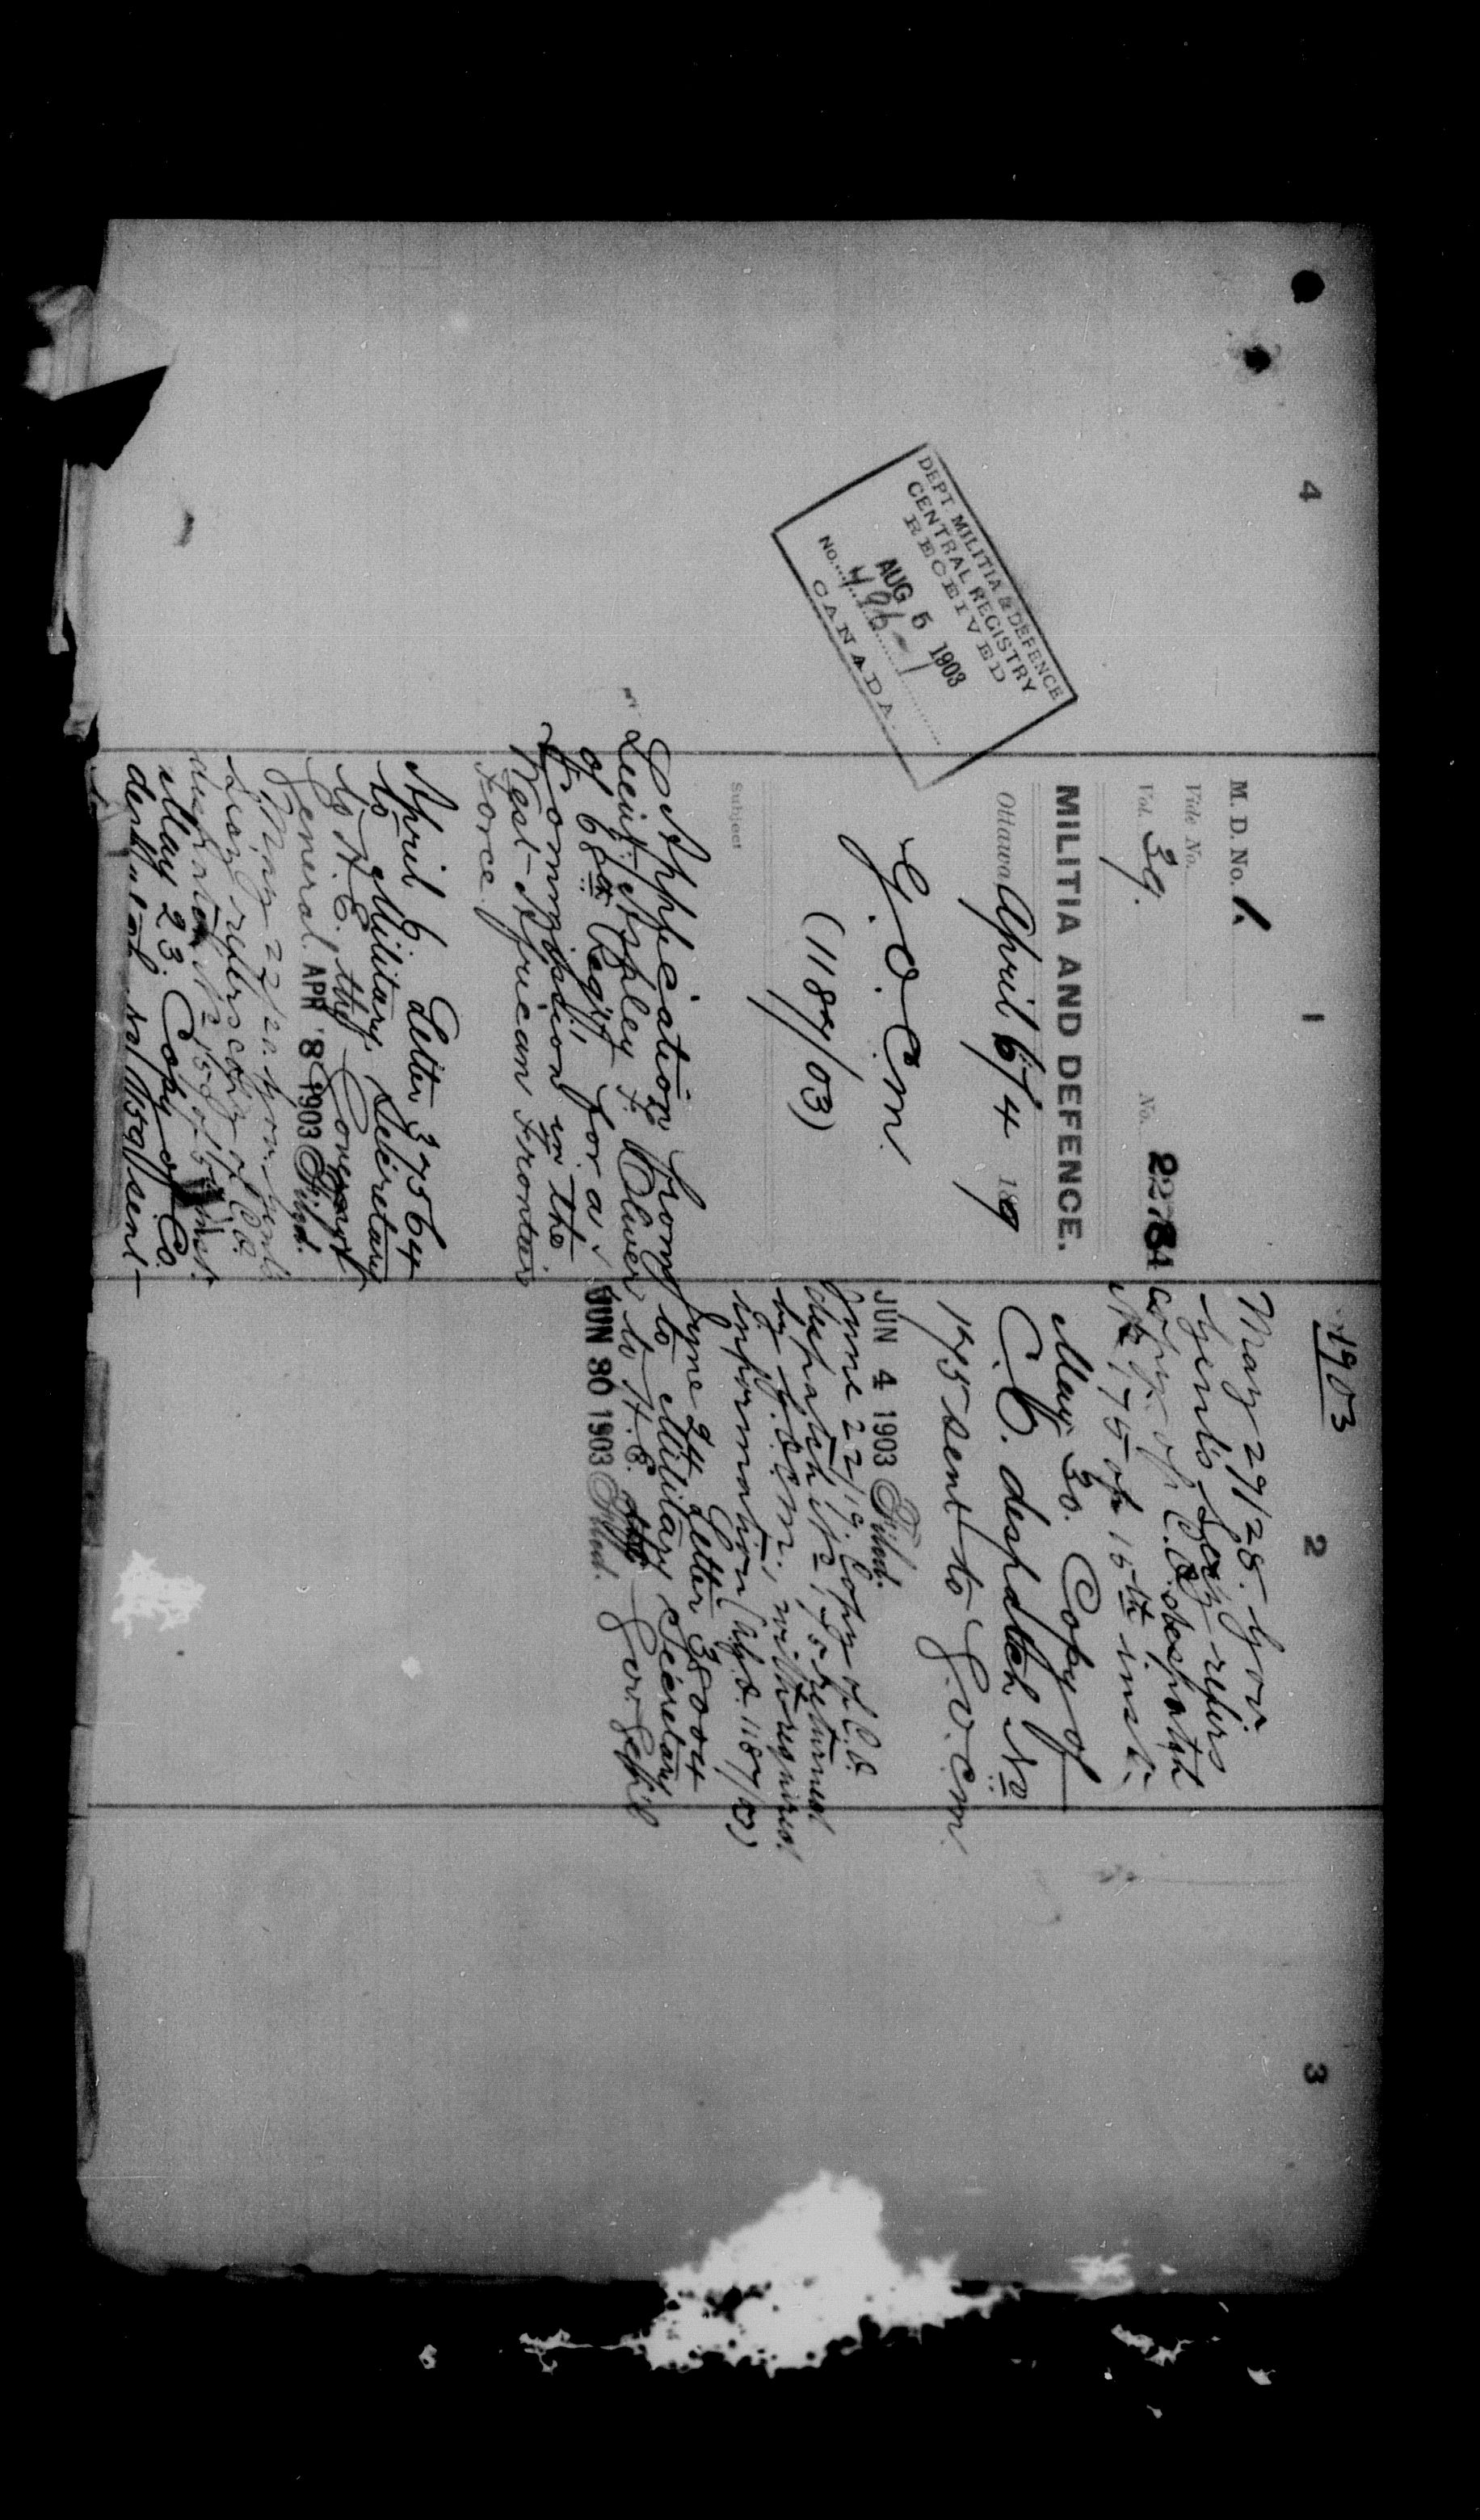 4
DEPT. MILITIA & DEFENCE
CENTRAL REGISTRY
RECEIVED
AUG 5 1903
No. 496-1
CANADA.
1
M. D. No. 1.
Vide No.
Vol. 39. No. 22781
MILITIA AND DEFENCE.
Ottawa April 6/4 189
G.O.C.M.
(1187/03)
Subject
Application from
Lieut. Aspley F. Oliver
of 6th Regt for a
Commission in the
West African Frontair
Force.
April 6 Letter 37564
to Military Secretary
to H.E. the Governor
General. APR 8 1903 Filed.
May 22/20. Gov. Genl's
Secy refers copy of C.O.
despatch No 159 of 15th inst.
May 23. Copy of C.O.
despatch No 159 sent
to
1903
2
May 29/28. Gov
Genl's Secy refers
copy of C.O. despatch
No 175 of 15th inst.
May 30. Copy of
C.O. despatch No
175 sent to G.O.C.M.
JUN 4 1903 Filed.
June 22/19. Copy of C.O.
despatch No 175 returned
by G.O.C.M., with required
information (1187/03)
June 24 Letter 38004
to Military Secretary
to H.E. the Gov Gen'l
JUN 30 1903 Filed.
3